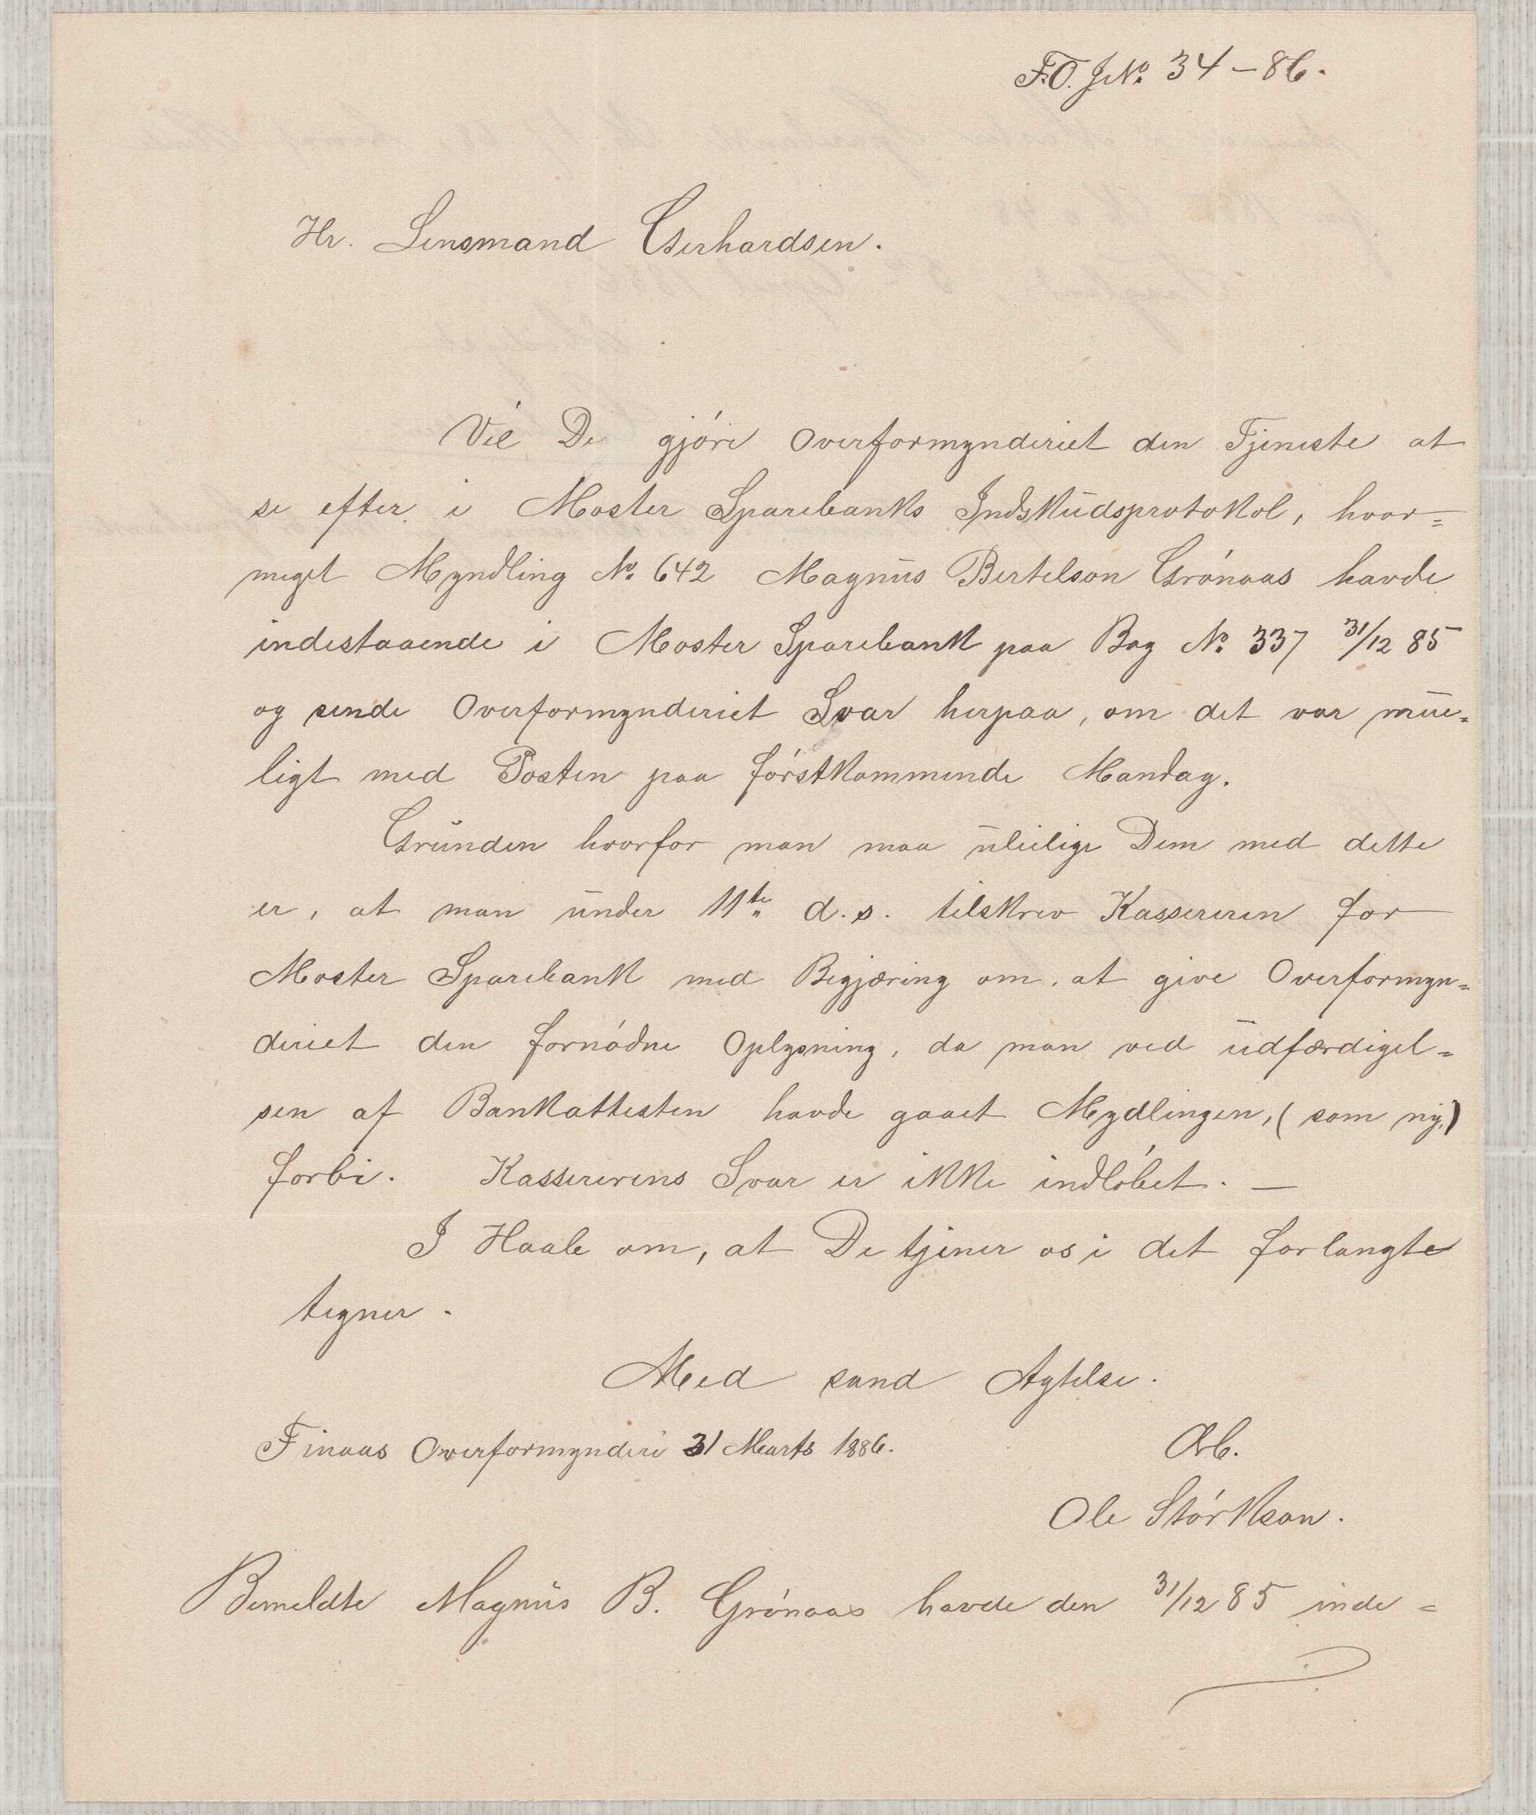 F.O. J.No. 34-86.
Hr. Lensmand Gerhardsen.
Vil De gjöre Overformynderiet den Tjeneste at
se efter i Moster Sparebanks Indskudsprotokol, hvor=
meget Myndling No. 642 Magnus Bertelson Grönaas havde
indestaaende i Moster Sparebank paa Bog No. 337 31/12 85
og sende Overformynderiet Svar herpaa, om det var mue=
ligt med Posten paa förstkommende Mandag.
Grunden hvorfor man maa uleilige Dem med dette
er, at man under 11te d.s. tilskrev Kassereren for
Moster Sparebank med Begjæring om, at give Overformyn=
deriet den fornödne Oplysning, da man ved udfærdigel=
sen af Bankattesten havde gaaet Mydlingen, (som ny)
forbi. Kassererens Svar er ikke indlöbet. —
I Haab om, at De tjener os i det forlangte
tegner.
Med sand Agtelse.
Finaas Overformynderi 31 Marts 1886.
Ærb.
Ole Störkson.
Bemeldte Magnus B. Grönaas havde den 31/12 85 inde=